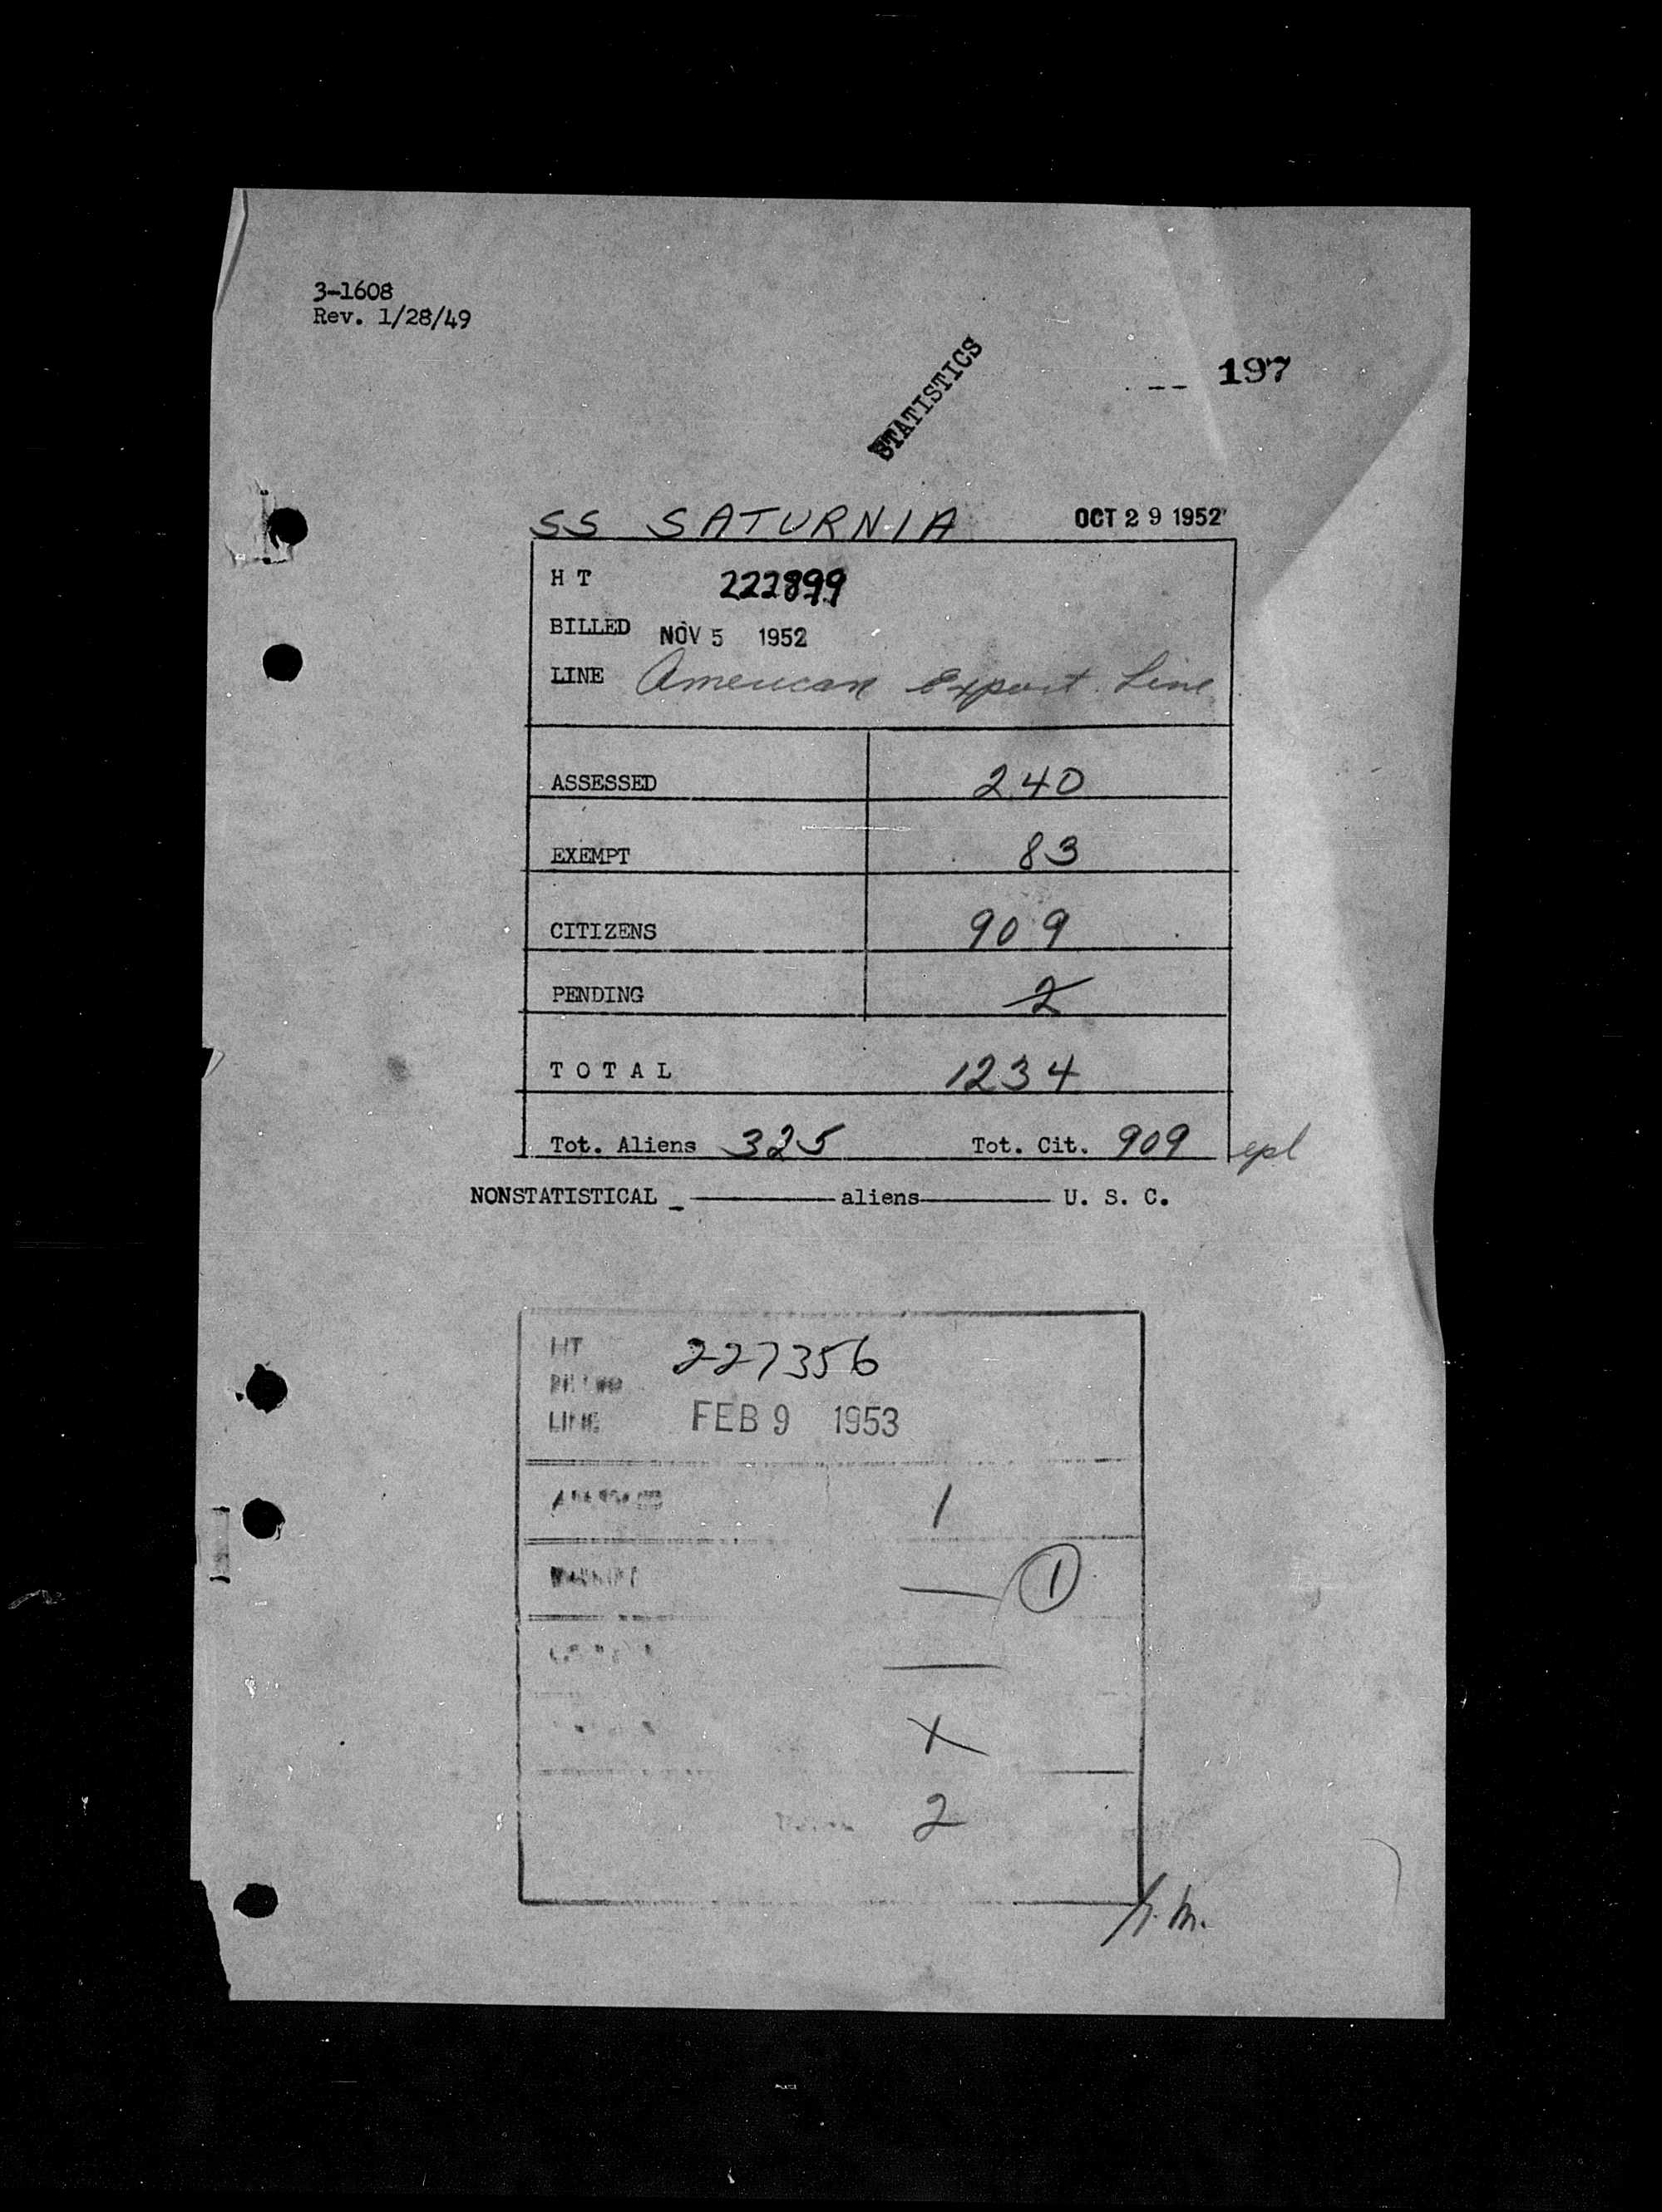 3-1608
Rev. 1/28/49
STATISTICS
-- 197
SS SATURNIA OCT 29 1952
H T 222899
BILLED NOV 5 1952
LINE American Export Line
ASSESSED 240
EXEMPT 83
CITIZENS 909
PENDING 2
T O T A L 1234
Tot. Aliens 325 Tot. Cit. 909 epl
NONSTATISTICAL aliens U. S. C.
HT 227356
BILLED
LINE FEB 9 1953
ASSESSED 1
— 1
—
1
2
h.m.